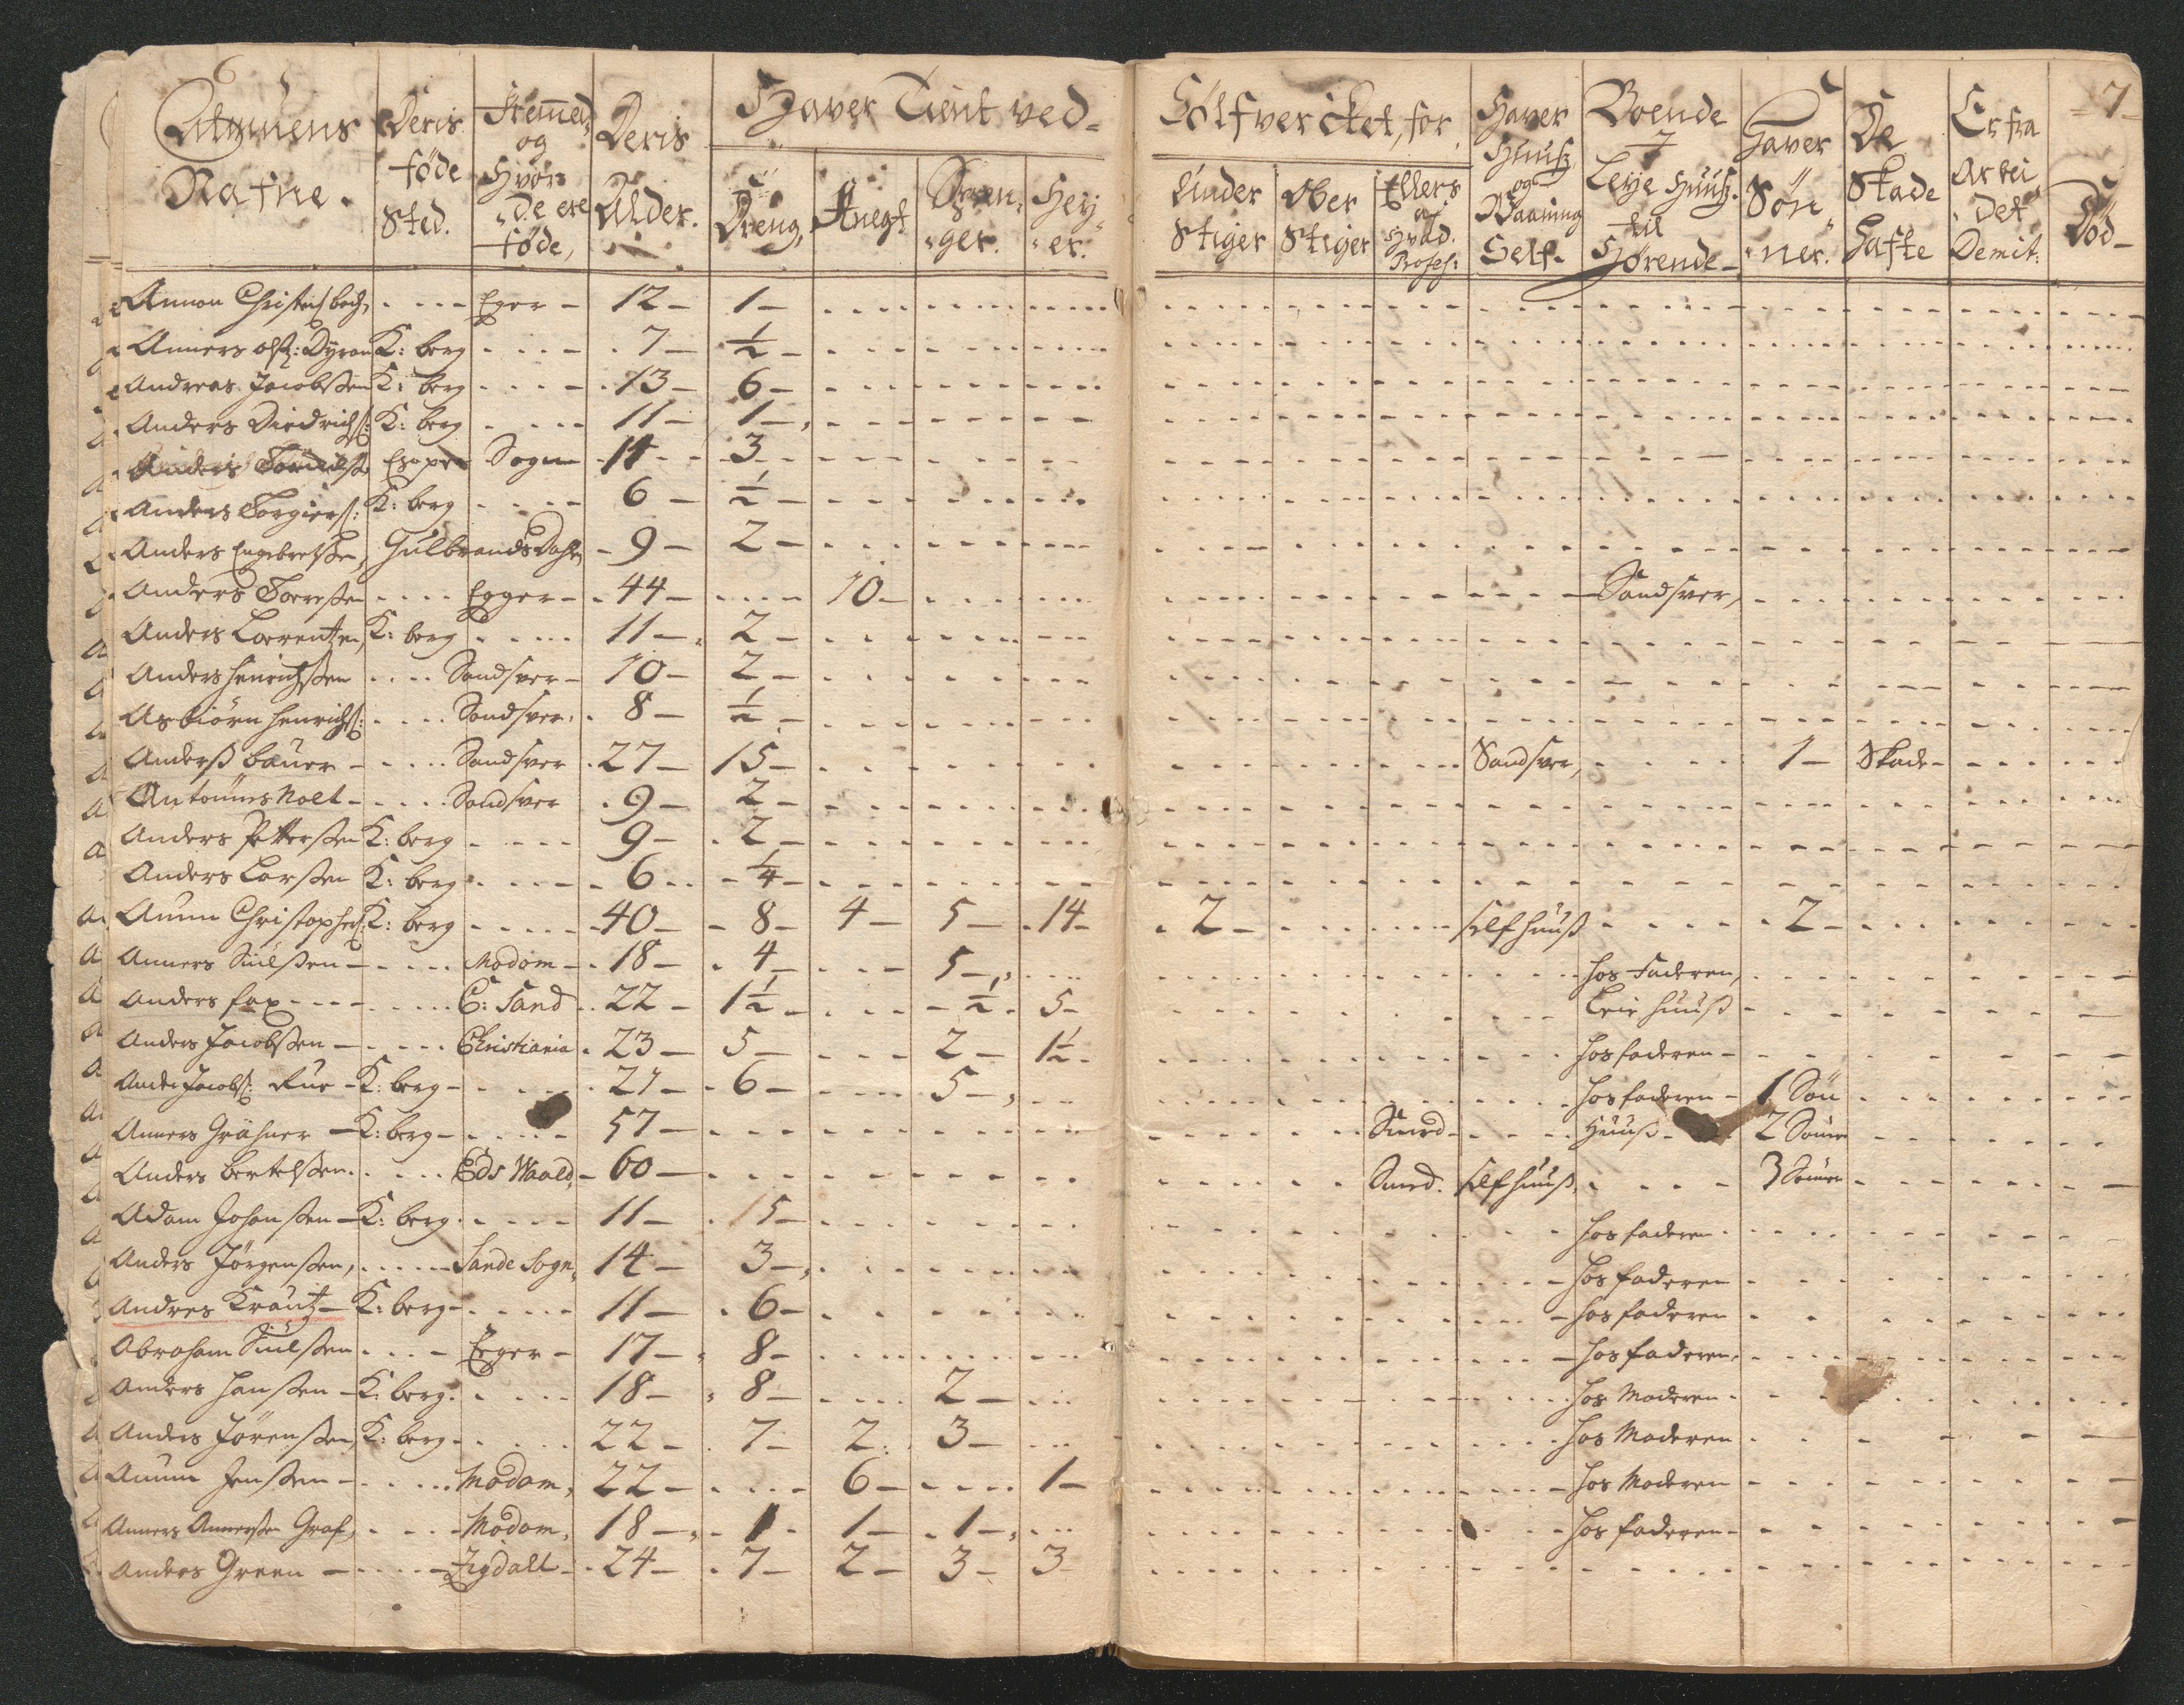 6
Nafne.
Deris föde Sted.
Fremed og Hvor de ere föde,
Deris Alder.
Hafver Tient ved
Dreng,
Knegt
Hey-er.
Sölfvercket, for
7
Under Stiger
Ober Stiger
Ellers af Hvad Profes:
Haver Huuß og Vaaning Self.
Boende I Leye Huuß. til Hörende
Haver Sön-ner.
De Skade Hafte
Er fra Arbei-det Demit:
Död
Eger - 12 - 1 -
Anners K: berg 7 - ½ -
Andreas Jacobßen K: berg 13 - 6 -
Anders Diedrichß: K: berg 11 - 1 -
Anders Sogn 3
Anders Torgierß: K: berg 6 - ½ -
Anders Engebretßen, Gulbrands Dahle - 9 - 2 -
Anders Egger - 44 - 10 - Sandsver,
Anders Lorentzen, K: berg 11 - 2 -
Anders Henrichßen Sandsver - 10 - 2 -
Asbiörn Henrichß: Sandsver. 8 - ½ -
Anderß Bauer - Sandsver 27 - 15 - Sandsver, 1 - Skade -
Antonius Nolt - Sandsver 9 - 2 -
Anders Petterßen K: berg 9 - 2 -
Anders Larßen K: berg 6 - ¼ -
Christophers: K: berg 40 - 8 - 4 - 5 - 14 - 2 - self huuß 2 -
Anners Modom - 18 - 4 - 5 - hos Faderen,
Anders fax E: Sand 22 - 1½ - ½ - 5 - Leie huuß
Anders Jacobßen - Christiania 23 - 5 - 2 - 1½ - hos faderen -
Jacobß: Rue - K: berg - 21 - 6 - 5 - hos faderen - 1 Sön
Anners Grähner - K: berg - 57 - Smed - Huuß - 2
Anders Bertelßen. Eds Waald, - 60 - Smed. self huuß, 3
Adam Johanßen - K: berg 11 - 15 - hos faderen
Anders Jörgenßen, Sande Sogn, 14 - 3 - hos faderen
Andres Krautz - K: berg - 11 - 6 - hos faderen
Abraham Eger - 17 - 8 - hos faderen,
Anders Hanßen - K: berg. 18 - 8 - 2 - hos Moderen
Anders Jörenßen, K: berg - 22 - 7 - 2 3 - hos Moderen
Jenßen - Modom, 22 - 6 - 1 - hos Moderen
Anners Annerßen Graf, Modom, 18 - 1 - 1 - 1 - hos faderen -
Anders Green - Zigdall - 24 - 7 - 2 - 3 - 3